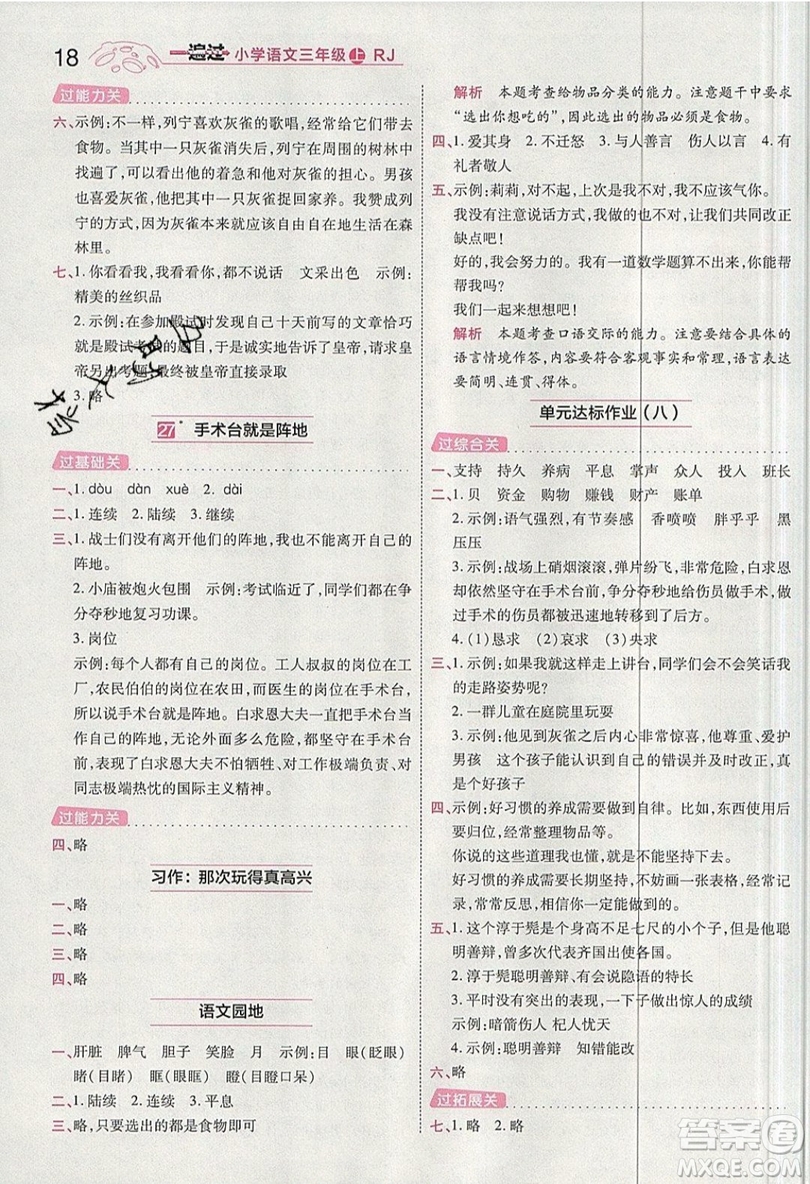 18
一遍过 小学语文三年级 上 RJ
过能力关
六、示例:不一样,列宁喜欢灰雀的歌唱,经常给它们带去
食物。当其中一只灰雀消失后,列宁在周围的树林中
找遍了,可以看出他的着急和他对灰雀的担心。男孩
也喜爱灰雀,他使用的方式是把灰雀捉回家养。我赞成列
宁的方式,因为灰雀本来就应该自由自在地生活在森
林里。
七、1. 你看看我,我看看你,都不说话 文采出色 示例:
精美的丝织品
2. 示例:在参加殿试时发现自己十天前写的文章恰巧
就是殿试考题的题目,于是诚实地告诉了皇帝,皇
帝另出考题,最终被皇帝直接录取
3. 略
27* 手术台就是阵地
过基础关
一、1. dòu dàn xuè 2. dài
二、1. 连续 2. 陆续 3. 继续
三、1. 战士们没有离开他们的阵地,我也不能离开我的
阵地。
2. 小庙被炮火包围 示例:考试临近了,同学们都在争
分夺秒地复习功课。
3. 岗位
示例:每个人都有自己的岗位。工人叔叔的岗位在工
厂,农民伯伯的岗位在农田,而医生的岗位在手术台,
手术台就像他们的阵地。白求恩大夫一直把手术台当
作自己的阵地,无论外面多么危险,都坚守在手术台
旁。体现了白求恩大夫不怕牺牲、对工作极端负责、对
同志极端热忱的国际主义精神。
过能力关
四、略
习作:那次玩得真高兴
一、略
二、略
三、略
四、略
语文园地
一、肝脏 脾气 胆子 笑脸 月 示例:目 眼(眨眼)
睹(目睹) 眯(眯眼) 瞪(瞪目口呆)
二、1. 陆续 2. 连续 3. 平息
三、略,只要选出的都是食物即可
解析 本题考查给物品分类的能力。注意题干中要求
“选出你想吃的”,因此选出的物品必须是食物。
四、1. 爱其身 2. 不迁怒 3. 与人善言 伤人以言 4. 有
礼者敬人
五、示例:莉莉,对不起,上次是我不对,不应该气你。
我没有注意说话方式,以后我会改的,让我们共同改正
缺点吧!
好的,我会努力的。我这里有一道数学题算不出来,你
帮帮我吧!
我们一起来想想吧!
解析 本题考查口语交际的能力。要注意结合具体的
语言情境作答。内容要符合客观事实和常理,语言表达
要简明、连贯、得体。
单元达标作业(八)
过综合关
一、支持 持久 养病 平息 掌声 众人 投人 班长
二、1. 贝 资金 购物 赚钱 财产 账单
2. 示例:语气强烈,有节奏感 香喷喷 胖乎乎 黑
压压
3. 示例:战场上硝烟滚滚,弹片纷飞,非常危险,白求恩
却依然坚守在手术台,争分夺秒地给伤员做手术,做
过手术的伤员都被迅速地转移到了后方。
4. (1)恳求 (2)哀求 (3)央求
三、1. 示例:如果我就这样走上讲台,同学们会不会笑话我
的走路姿势呢?
2. 一群儿童在庭院里玩耍
3. 示例:他见到灰雀之后非常惊喜,他尊重、爱护
男孩 这个孩子能认识到自己的错误并及时改正,真是
个好孩子
四、示例:好习惯的养成需要做到自律。比如,东西用完后
要归位,经常整理物品等。
你说的这些道理我也懂,但是坚持下来有些困难。
好习惯的养成需要长期坚持,不妨画一张表格,经常记
录,常常反思,相信你会养成好习惯的。
五、1. 这个淳于髡是个身高不足七尺的小个子,但是他聪
明善辩,曾多次代表齐国出使各国。
2. 淳于髡聪明善辩,会说隐语的特长
3. 平时没有突出的表现,一下子做出惊人的成绩
示例:暗箭伤人 杞人忧天
4. 示例:聪明善辩 知错能改
六、略
过拓展关
七、1. 略 2. 略
答案圈
MXQE.COM